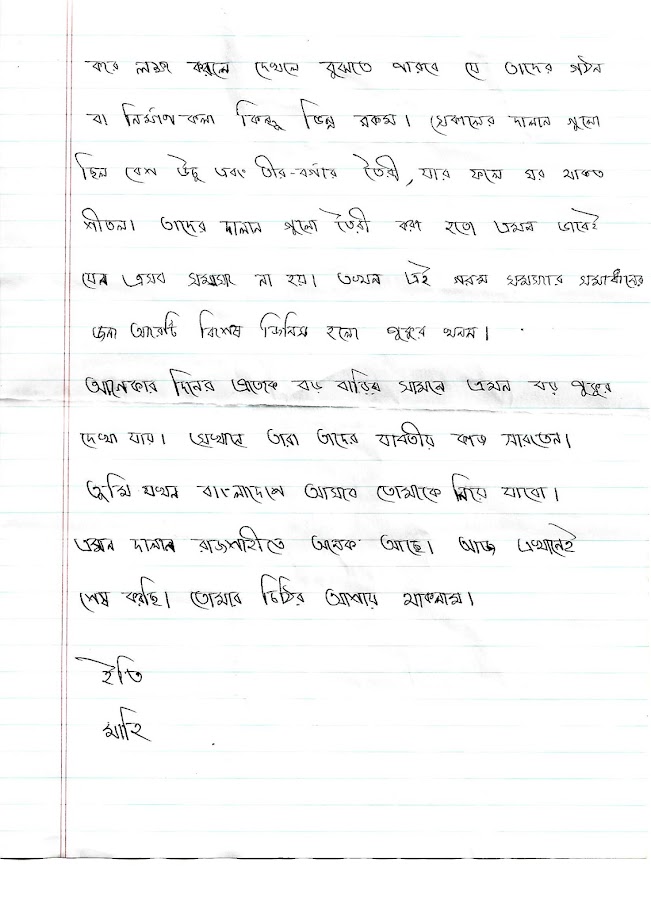 করে লক্ষ্য করলে দেখলে বুঝতে পারবে যে তাদের গঠন
বা নির্মাণ কলা কিন্তু ভিন্ন রকম। সেকালের দালান গুলো
ছিল বেশ উঁচু এবং তীর-বর্গার তৈরী, যার ফলে ঘর থাকত
শীতল। তাদের দালান গুলো তৈরী করা হতো এমন ভাবেই
যেন এসব সমস্যা না হয়। তখন এই গরম সমস্যার সমাধানের
জন্য আরেটি বিশেষ জিনিস হলো পুকুর খনন।
আগেকার দিনের প্রত্যেক বড় বাড়ির সামনে এমন বড় পুকুর
দেখা যায়। সেখানে তারা তাদের যাবতীয় কাজ সারতেন।
তুমি যখন বাংলাদেশে আসবে তোমাকে নিয়ে যাবো।
এমন দালান রাজশাহীতে অনেক আছে। আজ এখানেই
শেষ করছি। তোমার চিঠির আশায় থাকলাম।
ইতি
মাহি